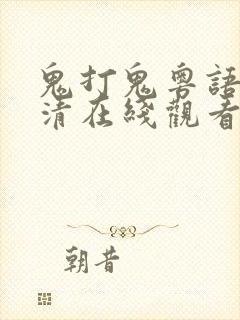 鬼打鬼粵語
清在綫觀看
朝昔